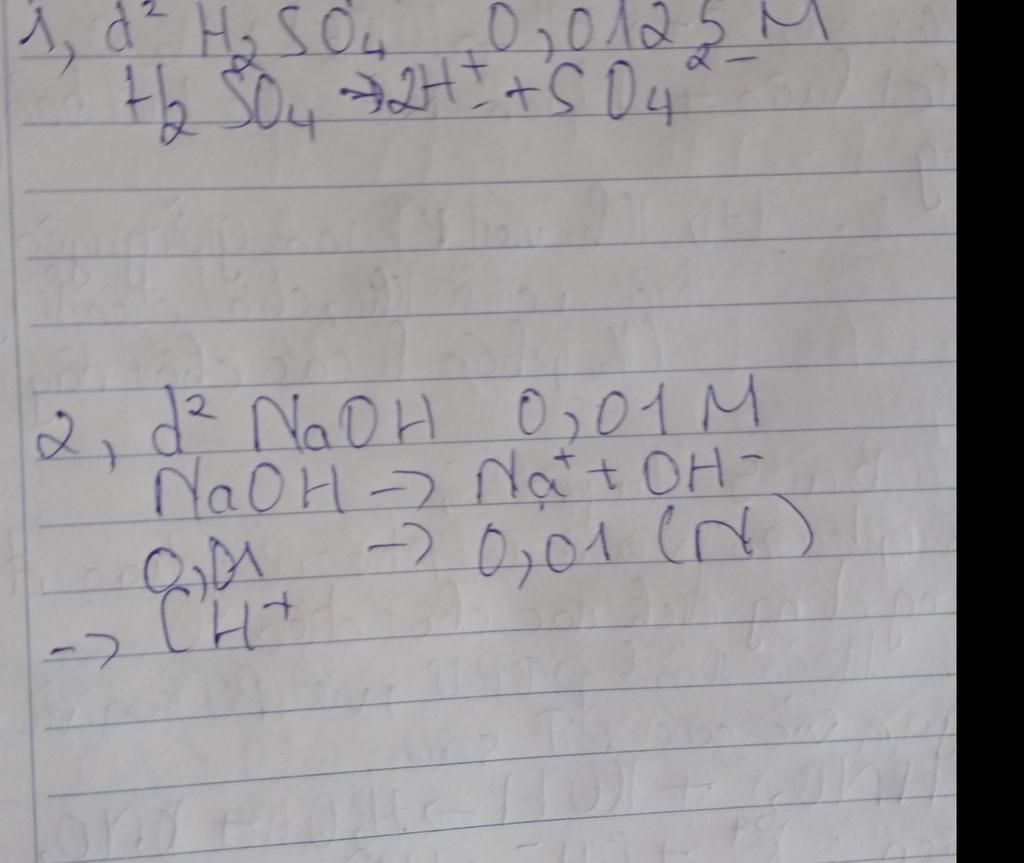 1, d² H₂SO₄ 0,0125 M
H₂SO₄ → 2H⁺ + SO₄²⁻
2, d² NaOH 0,01 M
NaOH → Na⁺ + OH⁻
0,01 → 0,01 (M)
→ [H⁺